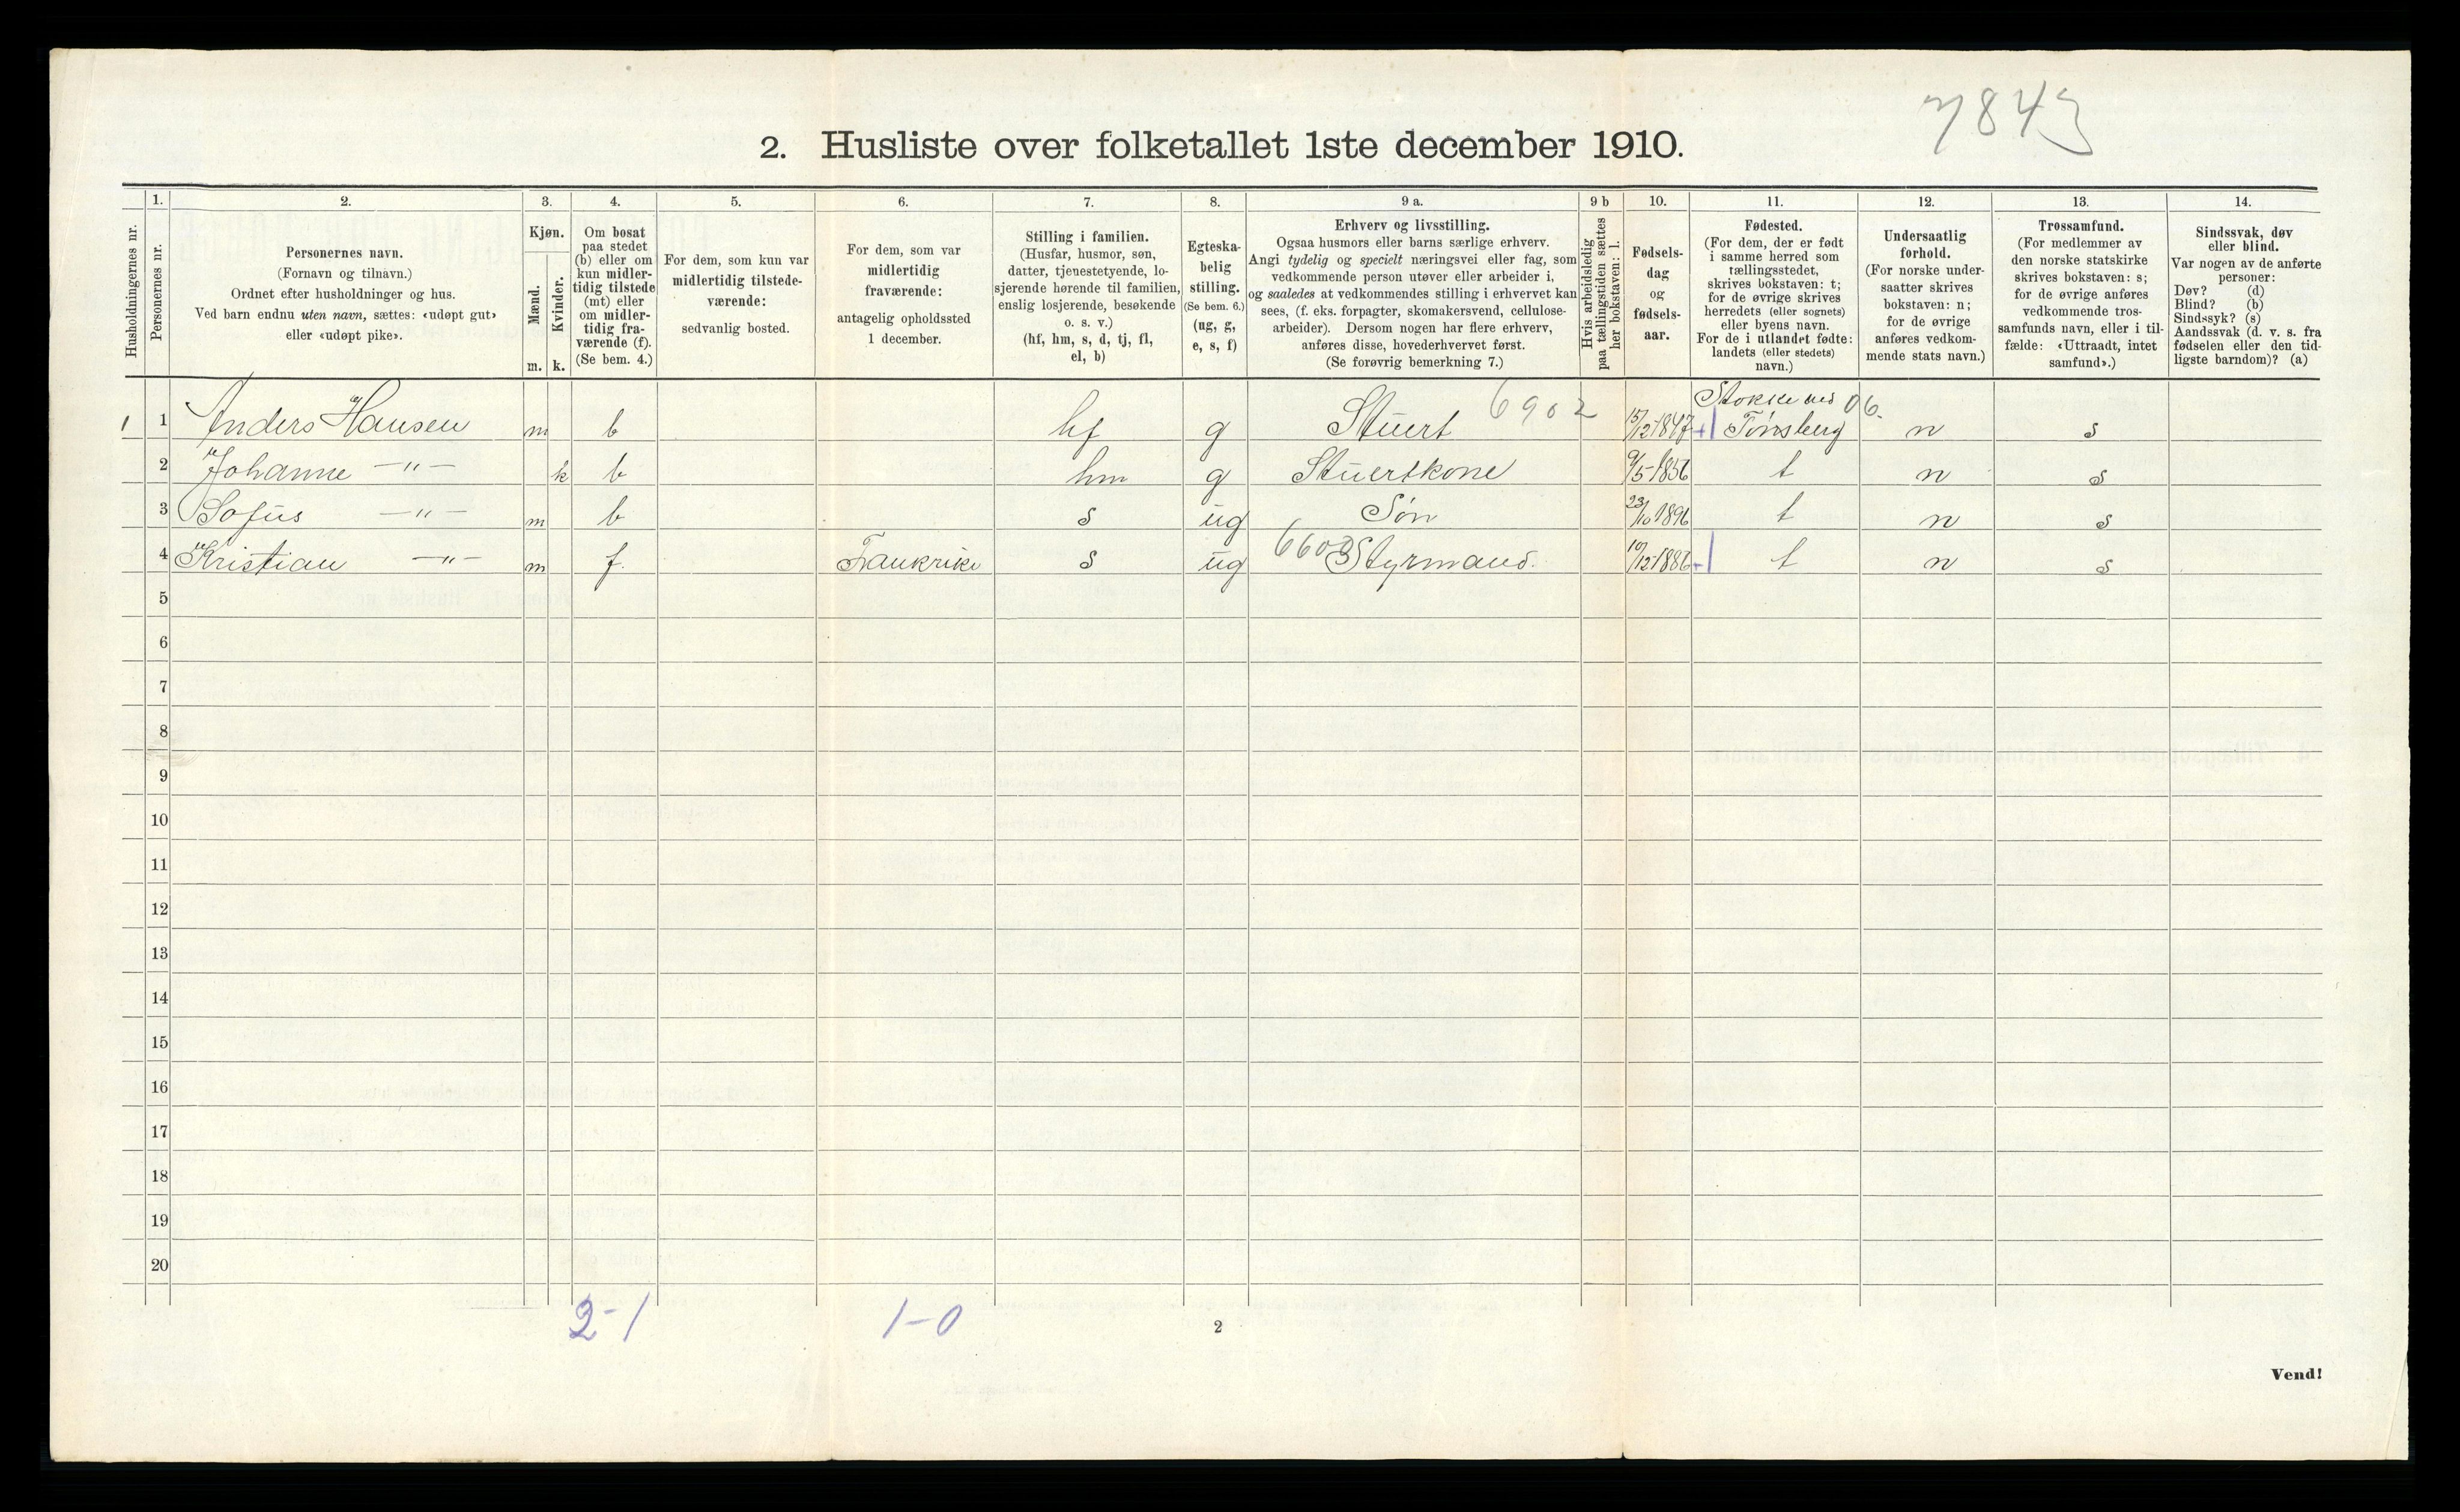 7843
2. Husliste over folketallet 1ste december 1910.
Husholdningernes nr.
1.
Personernes nr.
2.
Personernes navn.
(Fornavn og tilnavn.)
Ordnet efter husholdninger og hus.
Ved barn endnu uten navn, sættes: «udøpt gut»
eller «udøpt pike».
3.
Kjøn.
Mænd.
Kvinder.
m. k.
4.
Om bosat
paa stedet
(b) eller om
kun midler-
tidig tilstede
(mt) eller
om midler-
tidig fra-
værende (f).
(Se bem. 4.)
5.
For dem, som kun var
midlertidig tilstede-
værende:
sedvanlig bosted.
6.
For dem, som var
midlertidig
fraværende:
antagelig opholdssted
1 december.
7.
Stilling i familien.
(Husfar, husmor, søn,
datter, tjenestetyende, lo-
sjerende hørende til familien,
enslig losjerende, besøkende
o. s. v.)
(hf, hm, s, d, tj, fl,
el, b)
8.
Egteska-
belig
stilling.
(Se bem. 6.)
(ug, g,
e, s, f)
9 a.
Erhverv og livsstilling.
Ogsaa husmors eller barns særlige erhverv.
Angi tydelig og specielt næringsvei eller fag, som
vedkommende person utøver eller arbeider i,
og saaledes at vedkommendes stilling i erhvervet kan
sees, (f. eks. forpagter, skomakersvend, cellulose-
arbeider). Dersom nogen har flere erhverv,
anføres disse, hovederhvervet først.
(Se forøvrig bemerkning 7.)
9 b
Hvis arbeidsledig
paa tællingstiden sættes
her bokstaven: l.
10.
Fødsels-
dag
og
fødsels-
aar.
11.
Fødested.
(For dem, der er født
i samme herred som
tællingsstedet,
skrives bokstaven: t;
for de øvrige skrives
herredets (eller sognets)
eller byens navn.
For de i utlandet fødte:
landets (eller stedets)
navn.)
12.
Undersaatlig
forhold.
(For norske under-
saatter skrives
bokstaven: n;
for de øvrige
anføres vedkom-
mende stats navn.)
13.
Trossamfund.
(For medlemmer av
den norske statskirke
skrives bokstaven: s;
for de øvrige anføres
vedkommende tros-
samfunds navn, eller i til-
fælde: «Uttraadt, intet
samfund».)
14.
Sindssvak, døv
eller blind.
Var nogen av de anførte
personer:
Døv? (d)
Blind? (b)
Sindssyk? (s)
Aandssvak (d. v. s. fra
fødselen eller den tid-
ligste barndom)? (a)
1 1 Anders Hansen m b hf g Stuert 6902 15/12 1847 +| Stokke ved Tønsberg 06. n s
2 Johanne —"— k b hm g Stuertkone 9/5 1856 t n s
3 Sofus —"— m b s ug Søn 23/10 1896 t n s
4 Kristian —"— m f. Frankrike s ug 6603 Styrmand. 10/12 1886 +| t n s
5
6
7
8
9
10
11
12
13
14
15
16
17
18
19
20
2-1 1-0
2
Vend!